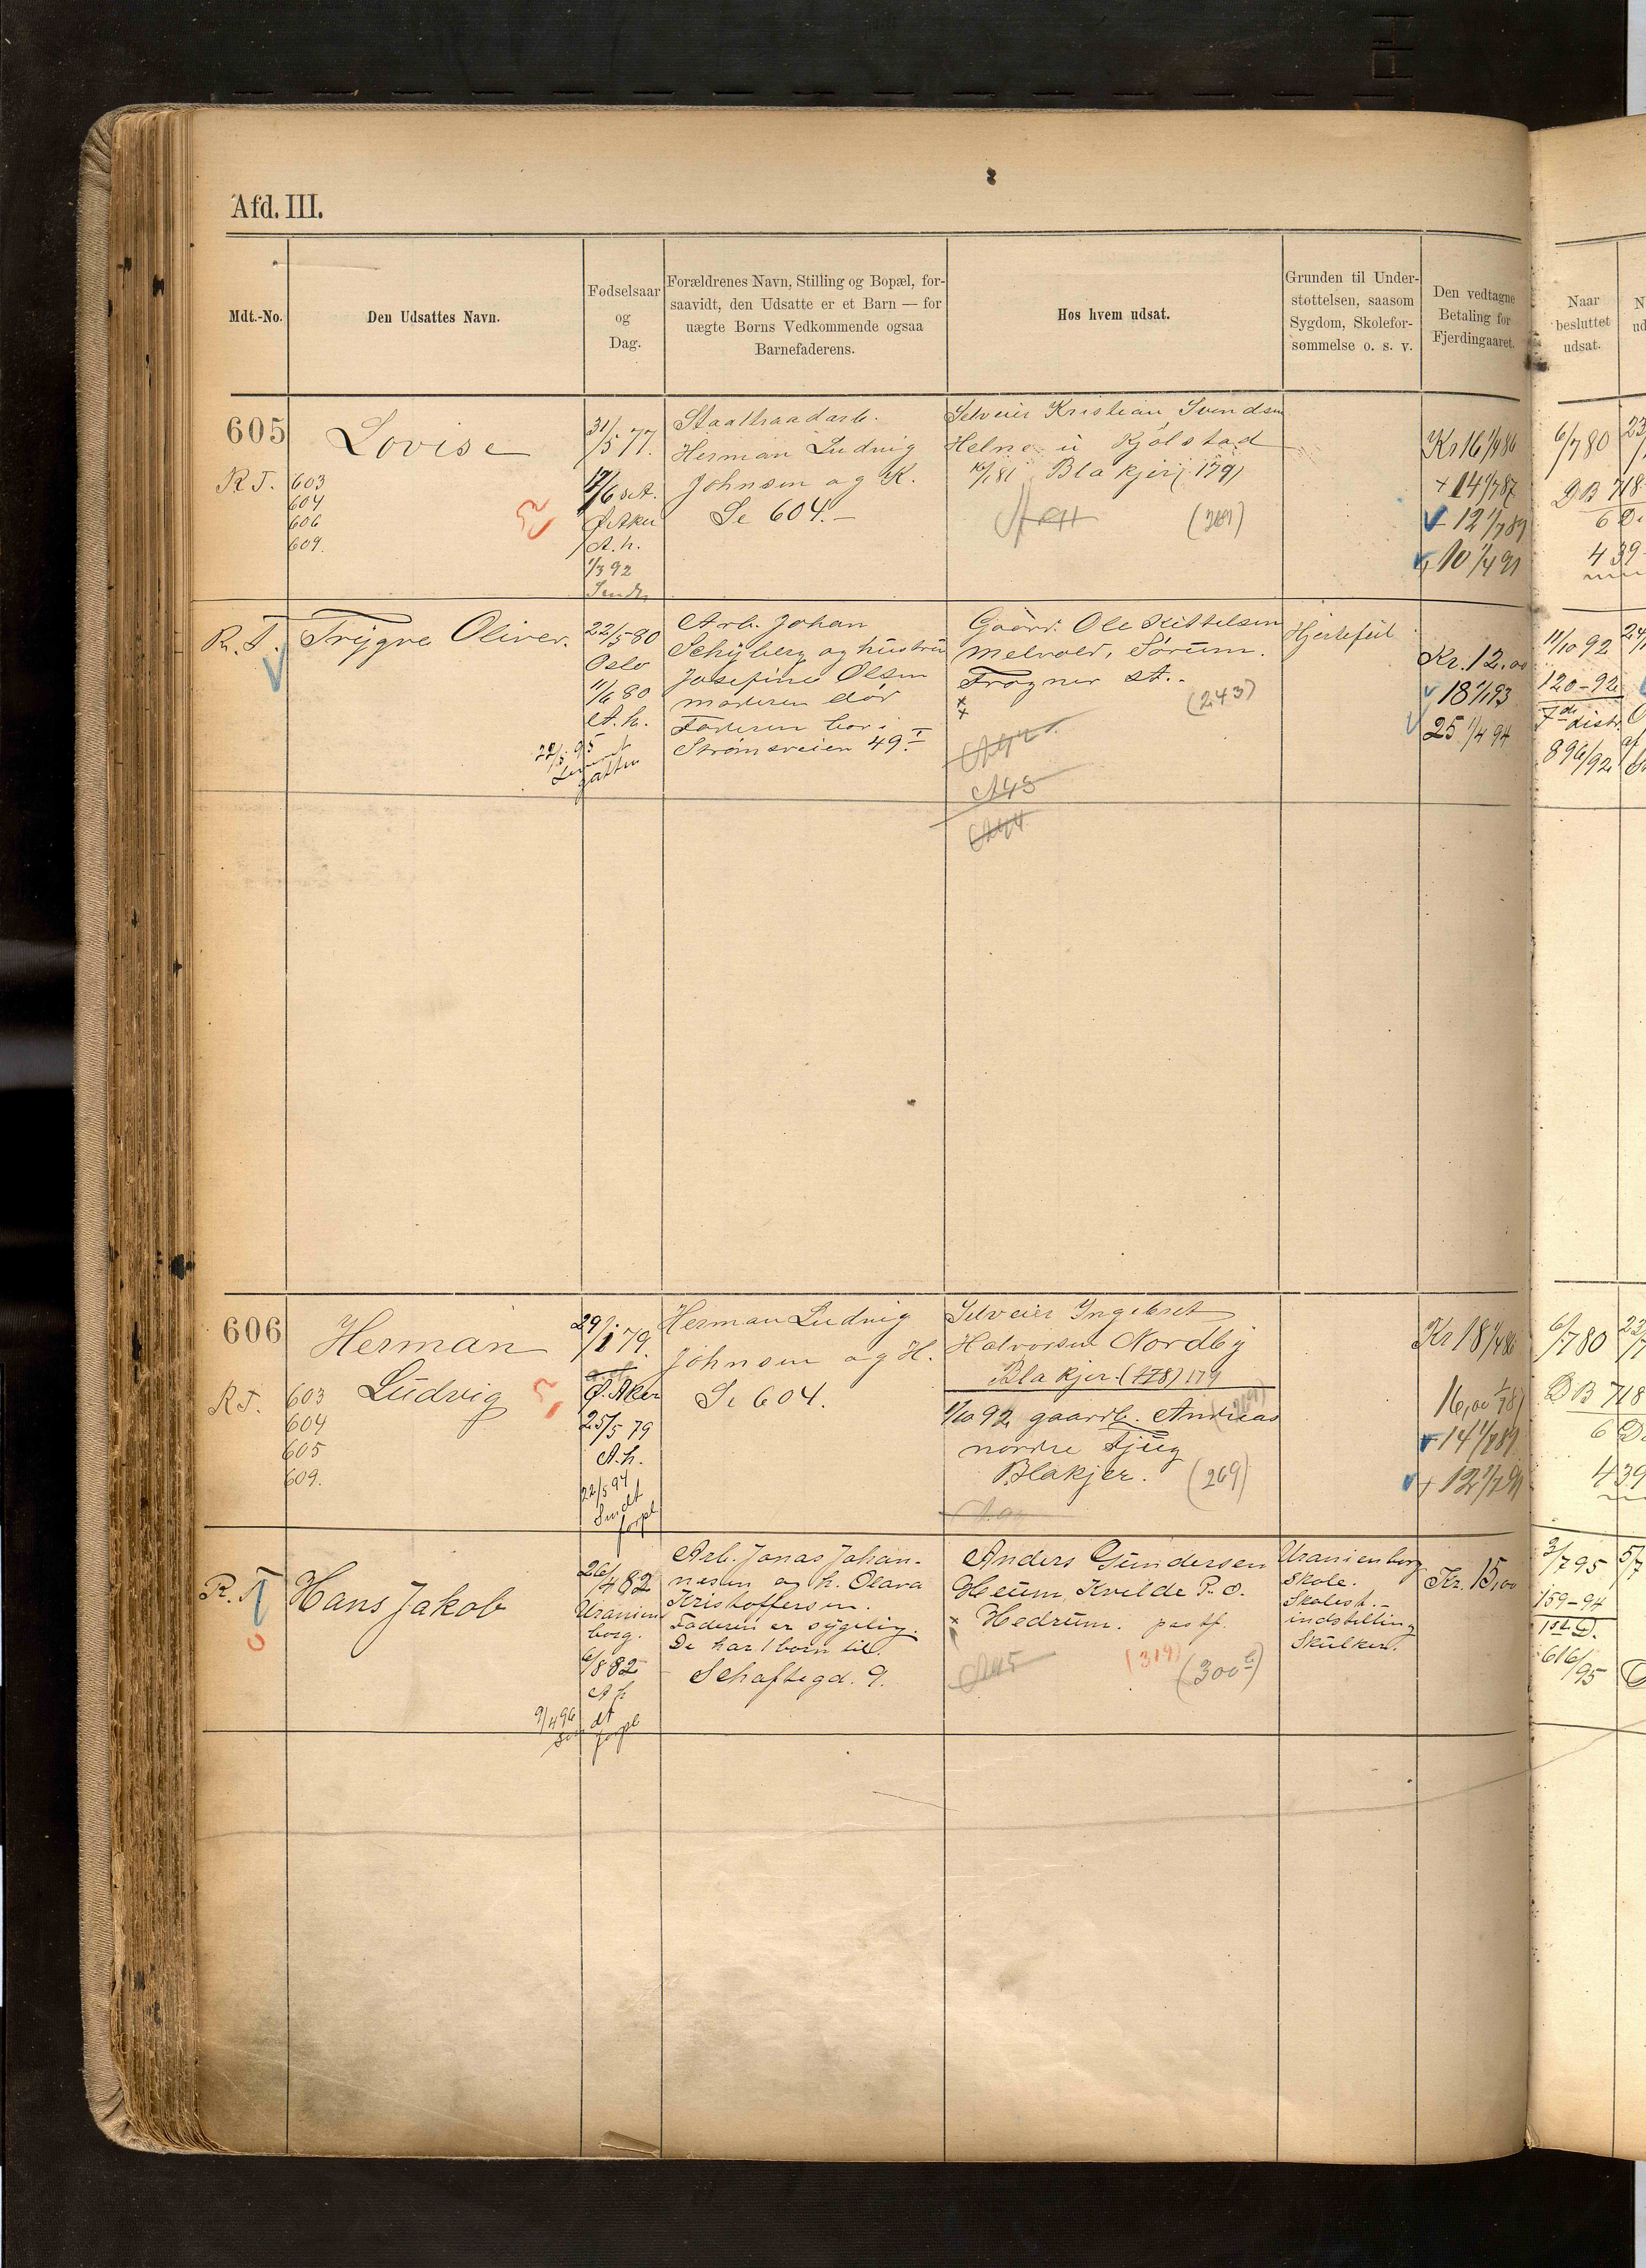 Afd. III.
Mdt.-No.
Den Udsattes Navn.
Fødselsaar
og
Dag.
Forældrenes Navn, Stilling og Bopæl, for-
saavidt, den Udsatte er et Barn — for
uægte Børns Vedkommende ogsaa
Barnefaderens.
Hos hvem udsat.
Grunden til Under-
støttelsen, saasom
Sygdom, Skolefor-
sømmelse o. s. v.
Den vedtagne
Betaling for
Fjerdingaaret.
Naar
besluttet
udsat.
605
R T. 603
604
606
609.
Lovise
31/5 77.
Ø Aker
A. h.
1/3 92
Staaltraadarb.
Herman Ludvig
Johnsen og K.
Se 604.-
Selveier Kristian Svendsen
Kjølstad
Blakjer (179)
(269)
Kr 16 1/4 86
+ 14 1/7 87
+ 12 1/7 89
+ 10 1/4 91
6/7 80
D B 718
6 D.
439
R. T. Trygve Oliver.
22/5 80
Oslo
11/6 80
A. h.
22/5 95
Arb. Johan
Schyberg og hustru
Josefine Olsen
moderen død
Faderen bor i
Strømsveien 49 I
Gaardb. Ole Kittelsen
Melvold, Sørum.
Frogner st.
(243)
Hjertefeil.
Kr. 12.00
18 1/1 93
25 1/4 94
11/10 92
120-92
7de distr.
896/92
606
R T. 603
604
605
609.
Herman
Ludvig
29/1 79.
Ø. Aker
25/5 79
A. h.
22/5 94
forpl
Herman Ludvig
Johnsen og H.
Se 604.
Selveier Ingebret
Halvorsen Nordby
Blakjer. (178) 179
1/10 92 gaardb. Andreas
nordre Fjug
Blakjer. (269)
Kr 18 1/4 86
16,00
+ 14 1/7 89
+ 12 1/7 91
6/7 80
D B 718
6 D.
439
R. T. Hans Jakob
26/4 82
Uranien
borg.
6/8 82
A h
9/4 96
dt
forpl
Arb. Jonas Johan-
nesen og h. Olava
Kristoffersen.
Faderen er sygelig.
De har 1 barn til.
Schaftegd. 9.
Anders Gundersen
Heum, Kvelde P. O.
Hedrum.
(319)
(300)
Uranienborg
Skole.
Skolest.-
indstilling
Skulker.
Kr. 15,00
3/7 95
159-94
1ste D.
616/95